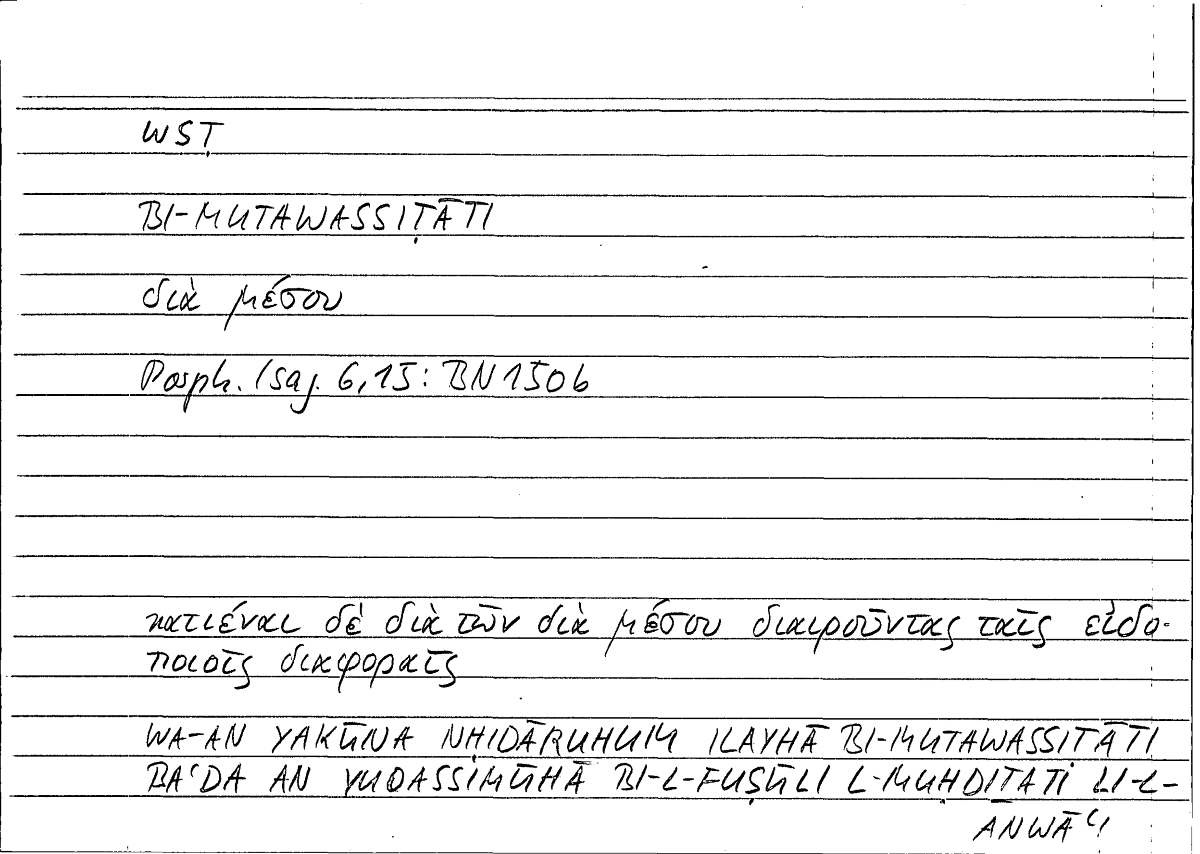 WSṬ
BI-MUTAWASSIṬĀTI
διὰ μέσου
Porph. Isag. 6,15: BN 150b
κατιέναι δὲ διὰ τῶν διὰ μέσου διαιροῦντας ταῖς εἰδο-
ποιοῖς διαφοραῖς
WA-AN YAKŪNA NḤIDĀRUHUM ILAYHĀ BI-MUTAWASSIṬĀTI
BAʿDA AN YUQASSIMŪHĀ BI-L-FUṢŪLI L-MUḤDIṮATI LI-L-
ANWĀʿI